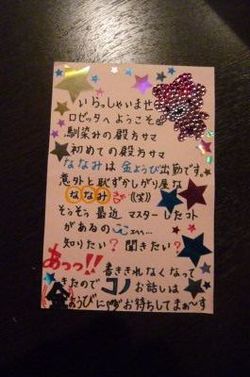 いらっしゃいませ
ロゼッタへようこそ
馴染みの殿方サマ
初めての殿方サマ
ななみは金ようび出勤です。
意外と恥ずかしがり屋な
ななみさ((笑))
そうそう最近マスターしたコト
があるの
知りたい？聞きたい？
あっっ!!書ききれなくなって
きたのでコノお話しは
金ようびにお待ちしてまぁ〜す